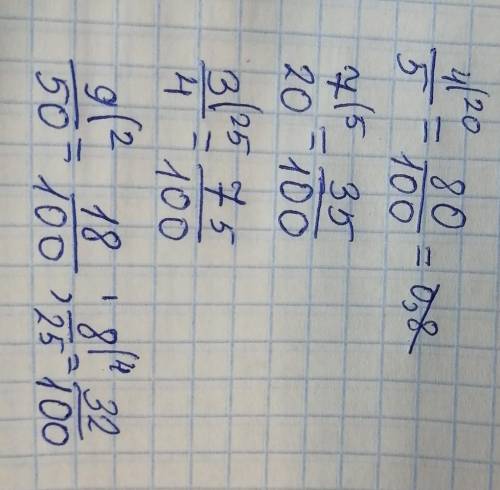 4/5 (20 = 80/100 = 0,8
7/20 (5 = 35/100
3/4 (25 = 75/100
9/50 (2 = 18/100 , 8/25 (4 = 32/100